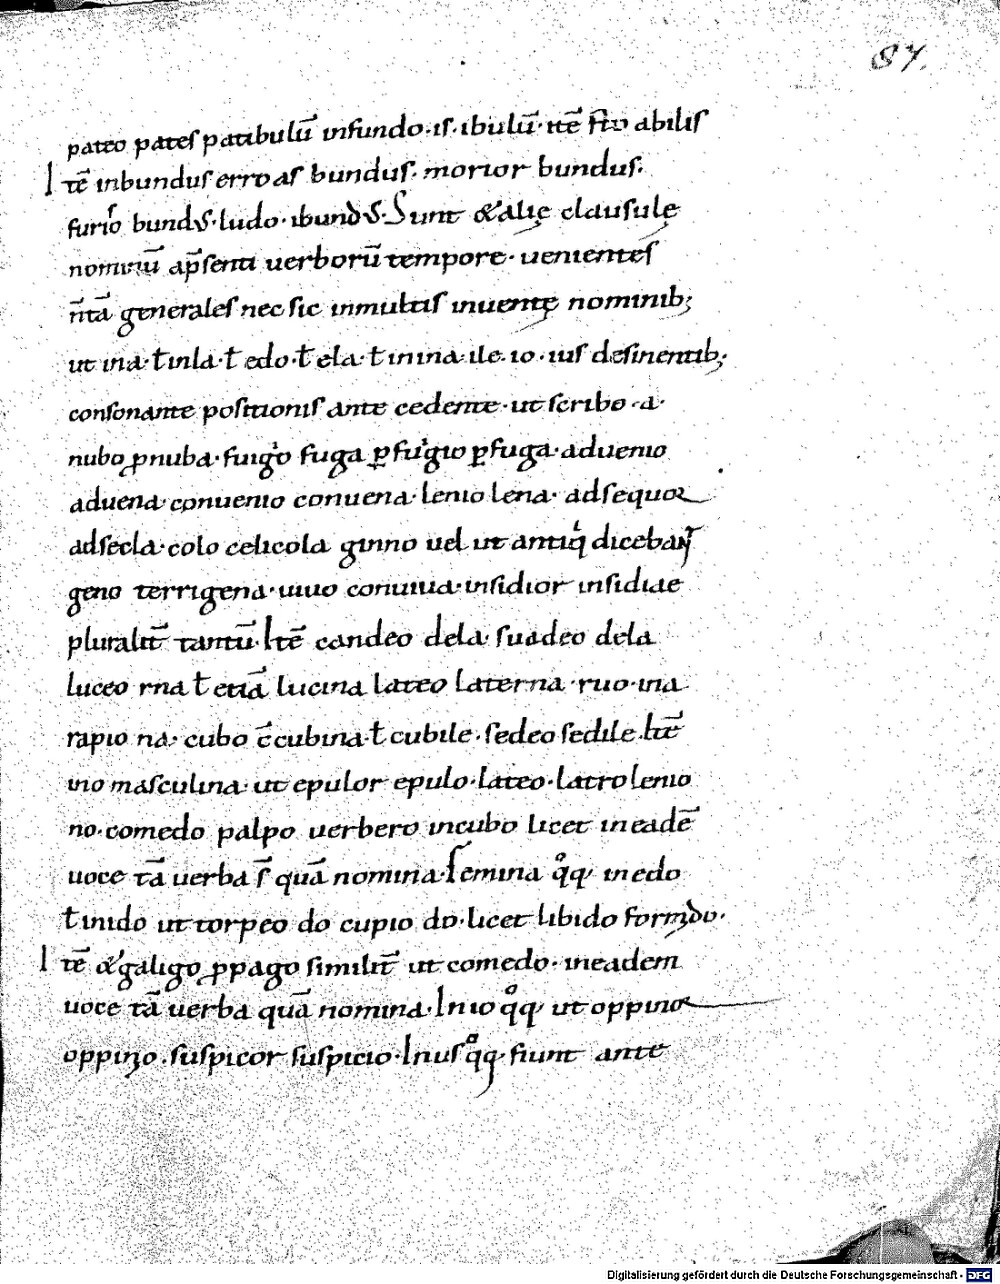 87.
pateo pates patibulū infundo · is · ibulū · itē abilis
Itē inbundus erro as bundus · morior bundus ·
bundus · ludo · ibundus · Sunt & alię clausulę
nominū ap̄senti uerborū tempore · uenientes
n̄tā generales nec sic inmultis inuentę nominib;
ut ina · ł inla · ł edo · ł ela · ł inina ile · io · ius desinentib;
consonante positionis ante cedente · ut scribo · a ·
nubo ꝓnuba · fuga ꝑfuga · aduenio
aduena · conuenio conuena · lenio lena · adsequor
adsecla · colo celicola ginno uel ut antiqi diceban̄
geno terrigena · uiuo conuiua · insidior insidiae
pluralit̄ tantū · Itē candeo dela · suadeo dela
luceo rna ł etiā lucina lateo laterna · ruo · ina
rapio na · cubo c̄cubina · ł cubile · sedeo sedile · Itē
ino masculina · ut epulor epulo · lateo · latro lenio
no · comedo palpo uerbero incubo licet ineadē
uoce tā uerba s̄ quā nomina · Femina qͦq; in edo
ł inido ut torpeo do cupio do · licet libido formido ·
Itē & galigo ꝓpago similit̄ ut comedo · ineadem
uoce tā uerba quā nomina · In io qͦq; ut oppinor
oppinio · suspicor suspicio · In us qͦq; fiunt ante
Digitalisierung gefördert durch die Deutsche Forschungsgemeinschaft - DFG